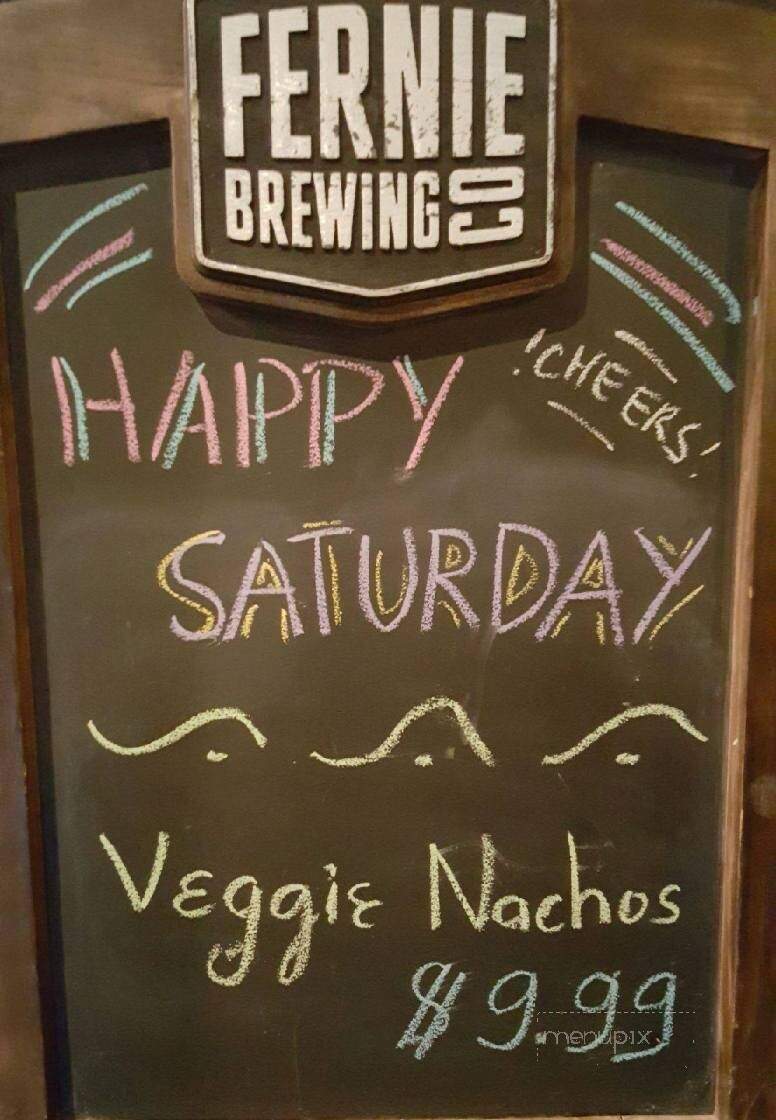 FERNIE
BREWING CO
HAPPY
!CHEERS!
SATURDAY
Veggie Nachos
$9.99
menupix